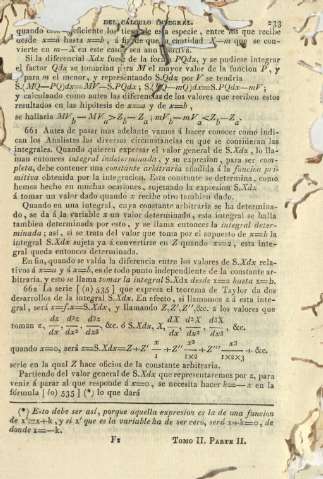 DEL CÁLCULO INTEGRAL. 233
quando los tiene de esta especie, entre los que recibe
desde x=a hasta x=b, á fin de que la cantidad X—m que se con-
vierte en m—X en este caso sea aun positiva.
Si la diferencial Xdx fuese de la forma PQdx, y se pudiese integrar
el factor Qdx se tomarían para M el mayor valor de la funcion P, y
para m el menor, y representando S.Qdx por V se tendria
S.(MQ—PQ)dx=MV—S.PQdx; S.(PQ—mQ)dx=S.PQdx—mV;
y calculando como antes las diferencias de los valores que reciben estos
resultados en las hipótesis de x=a y de x=b,
se hallaria MV_b—MV_a>Z_b—Z_a; mV_b—mV_a<Z_b—Z_a.
661 Antes de pasar mas adelante vamos á hacer conocer como indi-
can los Analistas las diversas circunstancias en que se consideran las
integrales. Quando quieren expresar el valor general de S.Xdx, lo lla-
man entonces integral indeterminada, y su expresion, para ser com-
pleta, debe contener una constante arbitraria añadida á la funcion pri-
mitiva obtenida por la integracion. Esta constante se determina, como
hemos hecho en muchas ocasiones, sujetando la expresion S.Xdx
á tomar un valor dado quando x recibe otro tambien dado.
Quando en una integral, cuya constante arbitraria se ha determina-
do, se da á la variable x un valor determinado, esta integral se halla
tambien determinada por esto, y se llama entonces la integral deter-
minada; así, si se trata del valor que toma por el supuesto de x=a la
integral S.Xdx sujeta ya á convertirse en Z quando x=z, esta inte-
gral queda entonces determinada.
En fin, quando se valúa la diferencia entre los valores de S.Xdx rela-
tivos á x=a y á x=b, es de todo punto independiente de la constante ar-
bitraria, y esto se llama tomar la integral S.Xdx desde x=a hasta x=b.
662 La serie [(a) 535] que expresa el teorema de Taylor da dos
desarrollos de la integral S.Xdx. En efecto, si llamamos z á esta inte-
gral, será z=S.Xdx, y llamando Z,Z',Z'',&c. á los valores que
toman z, dz/dx, d²z/dx², d³z/dx³, &c. ó S.Xdx, X, dX/dx, d²X/dx², d³X/dx³, &c.
quando x=0, será z=S.Xdx=Z+Z' x/1 +Z'' x²/1×2 +Z''' x³/1×2×3 + &c.
serie en la qual Z hace oficios de la constante arbitraria.
Partiendo del valor general de S.Xdx que representaremos por z, para
venir á parar al que responde á x=0, se necesita hacer k=—x en la
fórmula [(a) 535] (*) lo que dará
(*) Esto debe ser así, porque aquella expresion es la de una funcion
de x'=x+k, y si x' que es la variable ha de ser cero, será x+k=0, de
donde x=—k.
F2 TOMO II. PARTE II.